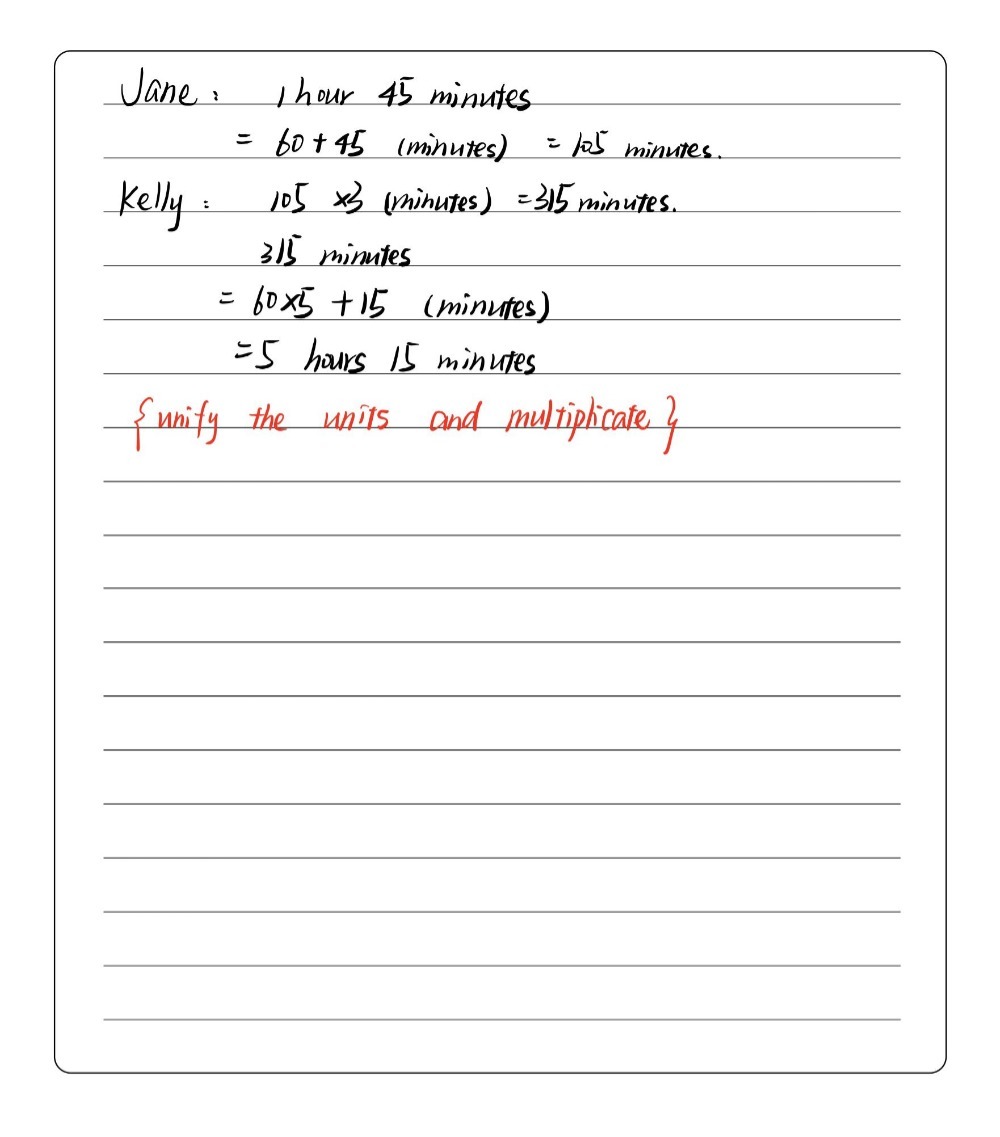 Jane: 1 hour 45 minutes
= 60 + 45 (minutes) = 105 minutes.
Kelly: 105 ×3 (minutes) = 315 minutes.
315 minutes
= 60×5 + 15 (minutes)
= 5 hours 15 minutes
{unify the units and multiplicate}